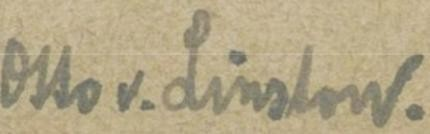 Otto v. Linstow.